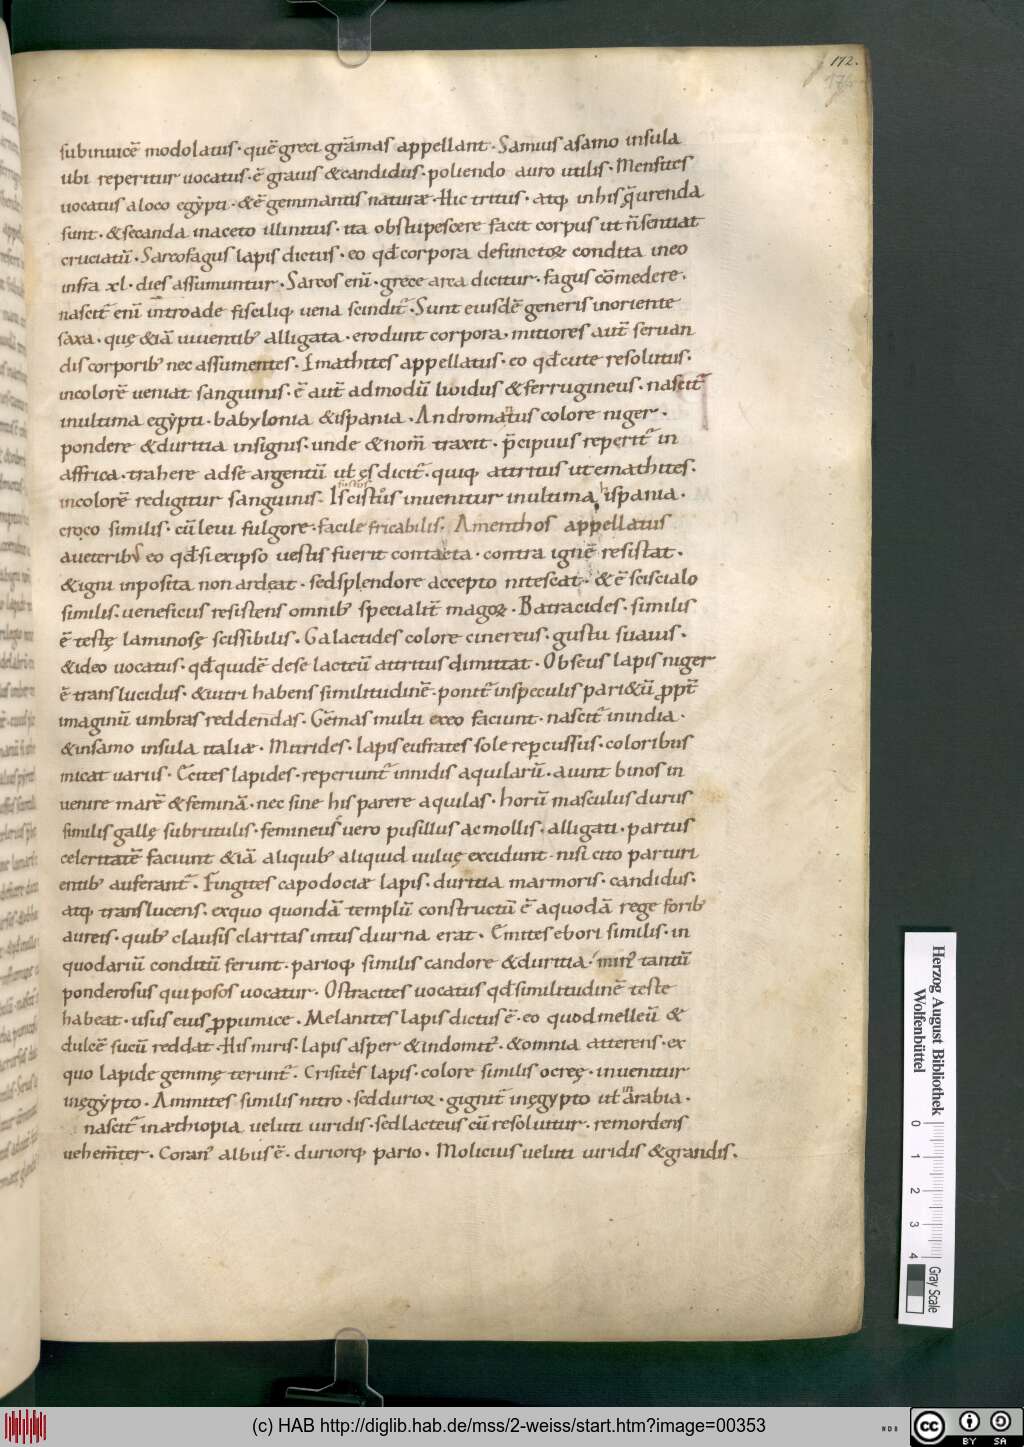 172.
176
subinuicē modolatus · quē greci grāmas appellant · Samius asamo insula
ubi reperitur uocatus · ē grauis & candidus · poliendo auro utilis · Mensites
uocatus a loco egypti · & ē gemmantis naturæ · Hic tritus · atq; inhis q̄ urenda
sunt · & secanda inaceto illinitus · ita obstupescere facit corpus ut n̄ sentiat
cruciatū · Sarcofagus lapis dictus · eo qđ corpora defunctoꝝ condita ineo
infra xl · dies assumuntur · Sarcos enī · grece arca dicitur · fagus cōmedere ·
nascit̄ enī introade fiscilıq; uena scindit̄ · Sunt eiusdē generis inoriente
saxa · quę & iā uiuentib; alligata · erodunt corpora · mitiores aut̄ seruan
dis corporib; nec assumentes · Imathites appellatus · eo qđ cute resolutus ·
incolorē ueniat sanguinis · ē aut̄ admodū liuidus & ferrugineus · nascit̄
inultima egypti · babylonia & ispania · Andromatus colore niger ·
pondere & duritia insignis · unde & nom̄ traxit · p̄cipuus reperit̄ in
affrica · trahere adse argentū ul̄ ęs dicit̄ · quiq; attritus ut emathites ·
incolorē redigitur sanguinis · Iscistus inuenitur inultima hispania ·
croco similis · cū leui fulgore · facile fricabilis · Amenthos appellatus
aueterib; eo qđ si exipso uestis fuerit contacta · contra ignē resistat ·
& igni inposita non ardeat · sed splendore accepto nitescat · & ē sciscialo
similis · ueneficus resistens omnib; specialit̄ magoꝝ · Batracides · similis
ē testę laminosę scissibilis · Galactides colore cinereus · gustu suauis ·
& ideo uocatus · qđ quidē dese lacteū attritus dimittat · Obseus lapis niger
ē translucidus · & uitri habens similitudinē · ponit̄ inspeculis pari&ū ꝓpt̄
imaginū umbras reddendas · Gēmas multi exeo faciunt · nascit̄ inindia ·
& insamo insula italiæ · Mitrides · lapis eufrates sole ꝑcussus · coloribus
micat uariis · Ccites lapides · reperiunt̄ innidis aquilarū · aiunt binos in
uenire marē & feminā · nec sine his parere aquilas · horū masculus durus
similis gallę subrutulis · femineus uero pusillus ac mollis · alligati · partus
celeritatē faciunt & iā aliquib; aliquid uuluę excidunt · nisi cito parturi
entib; auferant̄ · Fingites capodociæ lapis · duritia marmoris · candidus ·
atq; translucens · exquo quondā templū constructū ē aquodā rege forib;
aureis · quib; clausis claritas intus diurna erat · Cinites ebori similis · in
quo dariū conditū ferunt · parioq; similis candore & duritia · tantū
ponderosus qui posos uocatur · Ostracites uocatus qđ similitudinē teste
habeat · usus eius ꝓ pumice · Melanites lapis dictus ē · eo quod melleū &
dulcē sucū reddat · His miris · lapis asper & indomit; · & omnia atterens · ex
quo lapide gemmę terunt̄ · Crisites lapis · colore similis ocreę · inuenitur
inęgypto · Ammites similis nitro · sed durior · gignit̄ inęgypto ul̄ in arabia ·
nascit̄ inæthiopia ueluti uiridis · sed lacteus cū resoluitur · remordens
uehem̄ter · Coran; albus ē · duriorq; pario · Molicius ueluti uiridis & grandis ·
Herzog August Bibliothek
Wolfenbüttel
0 1 2 3 4
Gray Scale
(c) HAB http://diglib.hab.de/mss/2-weiss/start.htm?image=00353
WDB
cc
BY SA